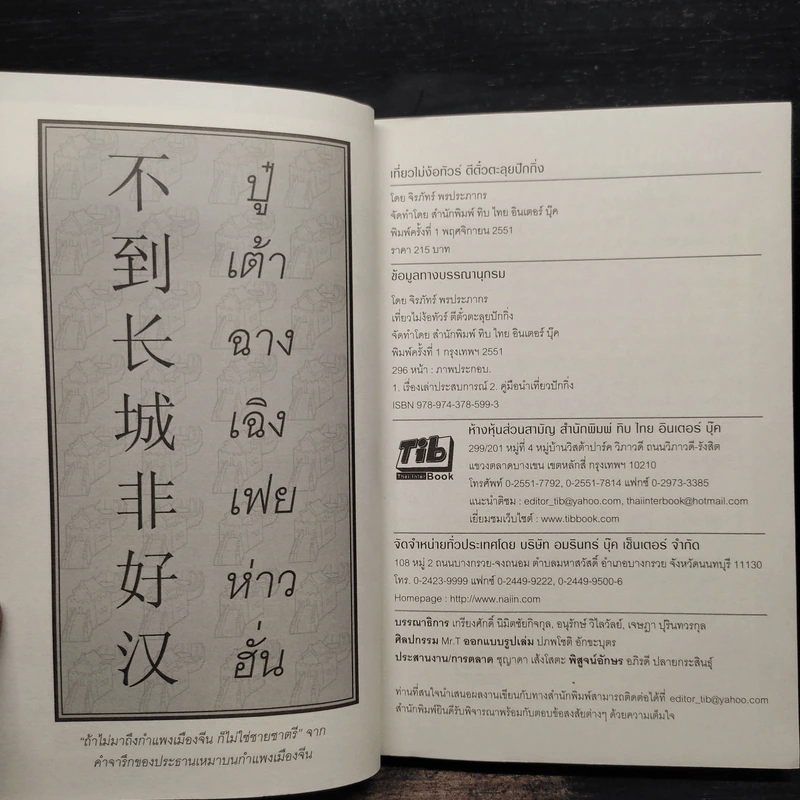 不 ปู้
到 เต้า
长 ฉาง
城 เฉิง
非 เฟย
好 ห่าว
汉 ฮั่น
"ถ้าไม่มาถึงกำแพงเมืองจีน ก็ไม่ใช่ชายชาตรี" จาก
คำจารึกของประธานเหมาบนกำแพงเมืองจีน
เที่ยวไม่ง้อทัวร์ ตีตั๋วตะลุยปักกิ่ง
โดย จิรภัทร์ พรประภากร
จัดทำโดย สำนักพิมพ์ ทิบ ไทย อินเตอร์ บุ๊ค
พิมพ์ครั้งที่ 1 พฤศจิกายน 2551
ราคา 215 บาท
ข้อมูลทางบรรณานุกรม
โดย จิรภัทร์ พรประภากร
เที่ยวไม่ง้อทัวร์ ตีตั๋วตะลุยปักกิ่ง
จัดทำโดย สำนักพิมพ์ ทิบ ไทย อินเตอร์ บุ๊ค
พิมพ์ครั้งที่ 1 กรุงเทพฯ 2551
296 หน้า : ภาพประกอบ.
1. เรื่องเล่าประสบการณ์ 2. คู่มือนำเที่ยวปักกิ่ง
ISBN 978-974-378-599-3
Tib
Thai Inter Book
ห้างหุ้นส่วนสามัญ สำนักพิมพ์ ทิบ ไทย อินเตอร์ บุ๊ค
299/201 หมู่ที่ 4 หมู่บ้านวิสต้าปาร์ค วิภาวดี ถนนวิภาวดี-รังสิต
แขวงตลาดบางเขน เขตหลักสี่ กรุงเทพฯ 10210
โทรศัพท์ 0-2551-7792, 0-2551-7814 แฟกซ์ 0-2973-3385
แนะนำติชม : editor_tib@yahoo.com, thaiinterbook@hotmail.com
เยี่ยมชมเว็บไซต์ : www.tibbook.com
จัดจำหน่ายทั่วประเทศโดย บริษัท อมรินทร์ บุ๊ค เซ็นเตอร์ จำกัด
108 หมู่ 2 ถนนบางกรวย-จงถนอม ตำบลมหาสวัสดิ์ อำเภอบางกรวย จังหวัดนนทบุรี 11130
โทร. 0-2423-9999 แฟกซ์ 0-2449-9222, 0-2449-9500-6
Homepage : http://www.naiin.com
บรรณาธิการ เกรียงศักดิ์ นิมิตชัยกิจกุล, อนุรักษ์ วิไลวัลย์, เจษฎา ปุรินทวรกุล
ศิลปกรรม Mr.T ออกแบบรูปเล่ม ปภพโชติ อักขะบุตร
ประสานงาน/การตลาด ชุญาดา เส้งโสตะ พิสูจน์อักษร อภิรดี ปลายกระสินธุ์
ท่านที่สนใจนำเสนอผลงานเขียนกับทางสำนักพิมพ์สามารถติดต่อได้ที่ editor_tib@yahoo.com
สำนักพิมพ์ยินดีรับพิจารณาพร้อมกับตอบข้อสงสัยต่างๆ ด้วยความเต็มใจ